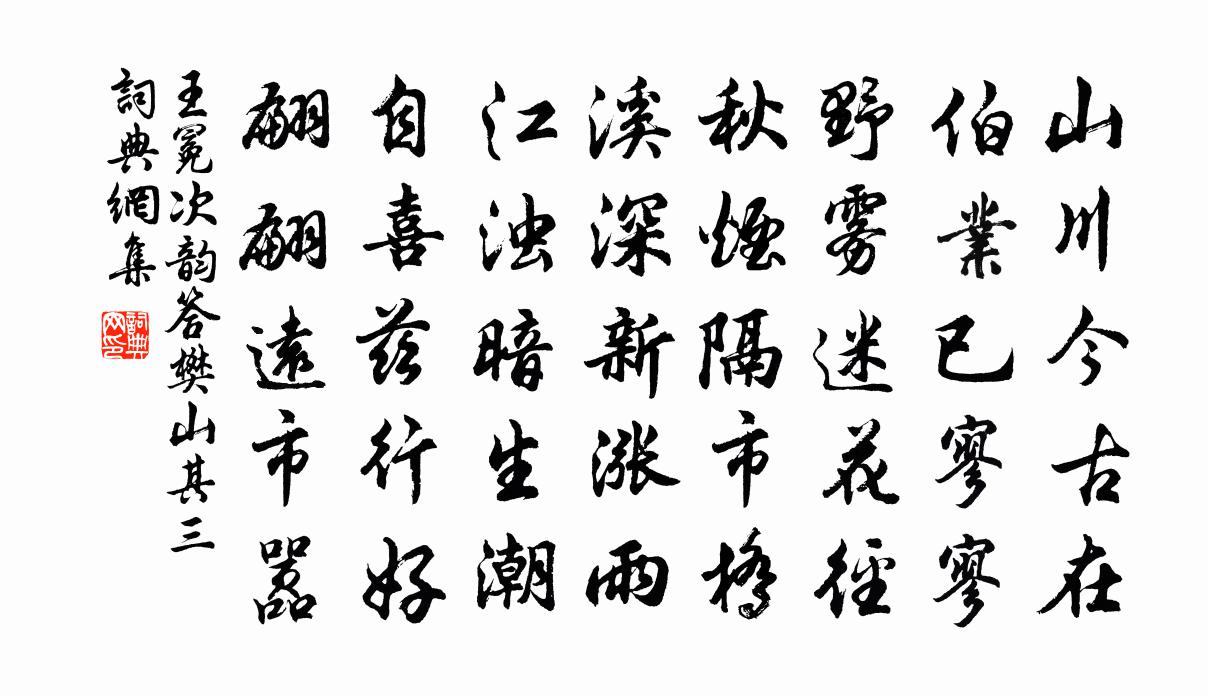 山川今古在
伯業已寥寥
野雾迷花徑
秋煙隔市橋
溪深新漲雨
江浊暗生潮
自喜茲行好
翩翩遠市囂
王冕次韵答樊山其三
詞典網集
詞典网印